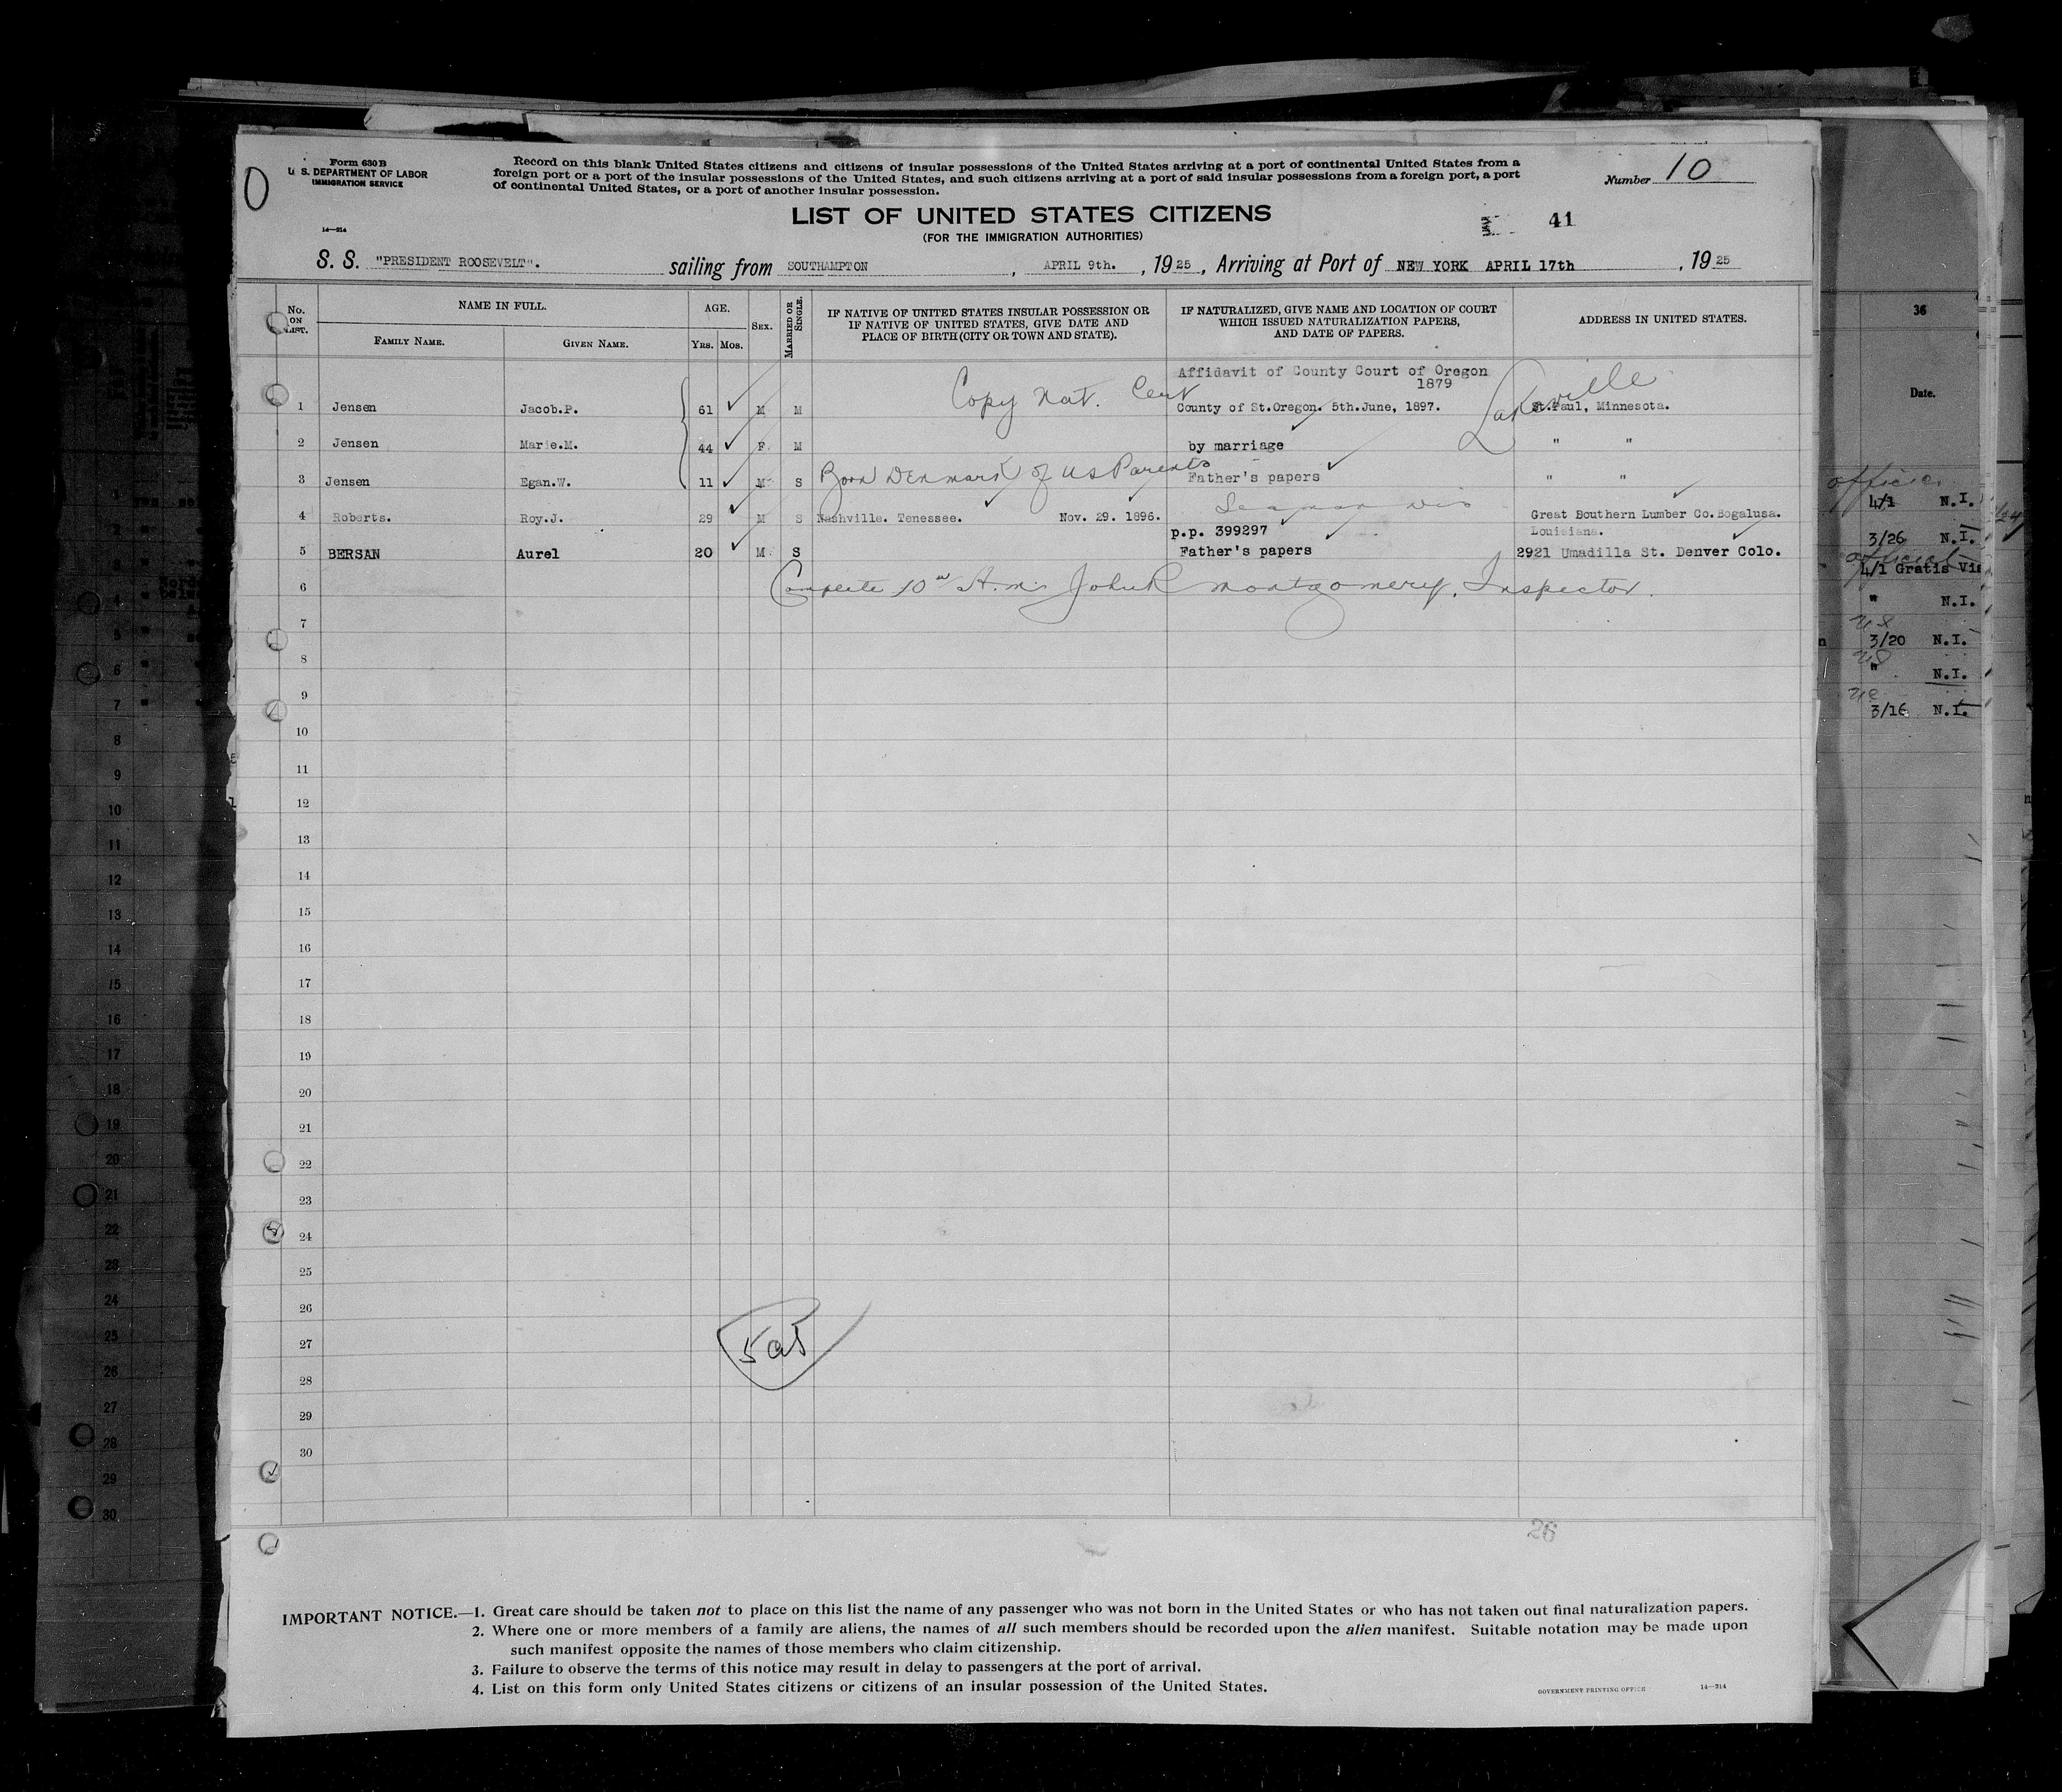 Form 630 B
U. S. DEPARTMENT OF LABOR
IMMIGRATION SERVICE
14—214
Record on this blank United States citizens and citizens of insular possessions of the United States arriving at a port of continental United States from a
foreign port or a port of the insular possessions of the United States, and such citizens arriving at a port of said insular possessions from a foreign port, a port
of continental United States, or a port of another insular possession.
Number 10
LIST OF UNITED STATES CITIZENS
(FOR THE IMMIGRATION AUTHORITIES)
41
S. S. "PRESIDENT ROOSEVELT". sailing from SOUTHAMPTON, APRIL 9th., 1925, Arriving at Port of NEW YORK APRIL 17th, 1925
No. ON LIST.
NAME IN FULL.
FAMILY NAME.
GIVEN NAME.
AGE.
YRS. MOS.
SEX.
MARRIED OR SINGLE.
IF NATIVE OF UNITED STATES INSULAR POSSESSION OR
IF NATIVE OF UNITED STATES, GIVE DATE AND
PLACE OF BIRTH (CITY OR TOWN AND STATE).
IF NATURALIZED, GIVE NAME AND LOCATION OF COURT
WHICH ISSUED NATURALIZATION PAPERS,
AND DATE OF PAPERS.
ADDRESS IN UNITED STATES.
Affidavit of County Court of Oregon
1879
Copy Nat. Cert
Lakeville
1 Jensen Jacob.P. 61 M M County of St.Oregon. 5th.June, 1897. St.Paul, Minnesota.
2 Jensen Marie.M. 44 F. M by marriage " "
Born Denmark of US Parents
3 Jensen Egan.W. 11 M S Father's papers " "
Seaman
4 Roberts. Roy.J. 29 M S Nashville. Tenessee. Nov. 29. 1896. Great Bouthern Lumber Co.Bogalusa.
p.p. 399297 Louisiana.
5 BERSAN Aurel 20 M S Father's papers 2921 Umadilla St. Denver Colo.
6 Complete 10 A.m. John R Montgomery, Inspector.
7
8
9
10
11
12
13
14
15
16
17
18
19
20
21
22
23
24
25
26
27
28
29
30
26
IMPORTANT NOTICE.—1. Great care should be taken not to place on this list the name of any passenger who was not born in the United States or who has not taken out final naturalization papers.
2. Where one or more members of a family are aliens, the names of all such members should be recorded upon the alien manifest. Suitable notation may be made upon
such manifest opposite the names of those members who claim citizenship.
3. Failure to observe the terms of this notice may result in delay to passengers at the port of arrival.
4. List on this form only United States citizens or citizens of an insular possession of the United States.
GOVERNMENT PRINTING OFFICE 14—214
36
Date.
4/1 N.I.
3/26 N.I.
4/1 Gratis
" N.I.
3/20 N.I.
" N.I.
3/16 N.I.
4
5
6
7
8
9
10
11
12
13
14
15
16
17
18
19
20
21
22
23
24
25
26
27
28
29
30